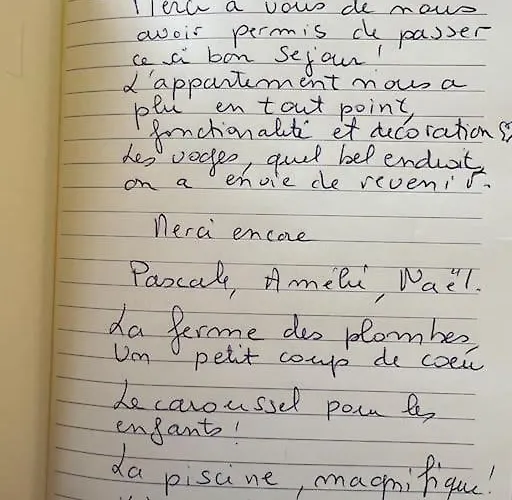 Merci à vous de nous
avoir permis de passer
ce si bon sejour!
L'appartement nous a
plu en tout point,
fonctionalité et décoration
Les voges, quel bel enduit,
on a envie de revenir.
Merci encore
Pascale, Amélie, Naël.
La ferme des plombes,
Un petit coup de coeu
Le caroussel pour les
enfants!
La piscine, magnifique!